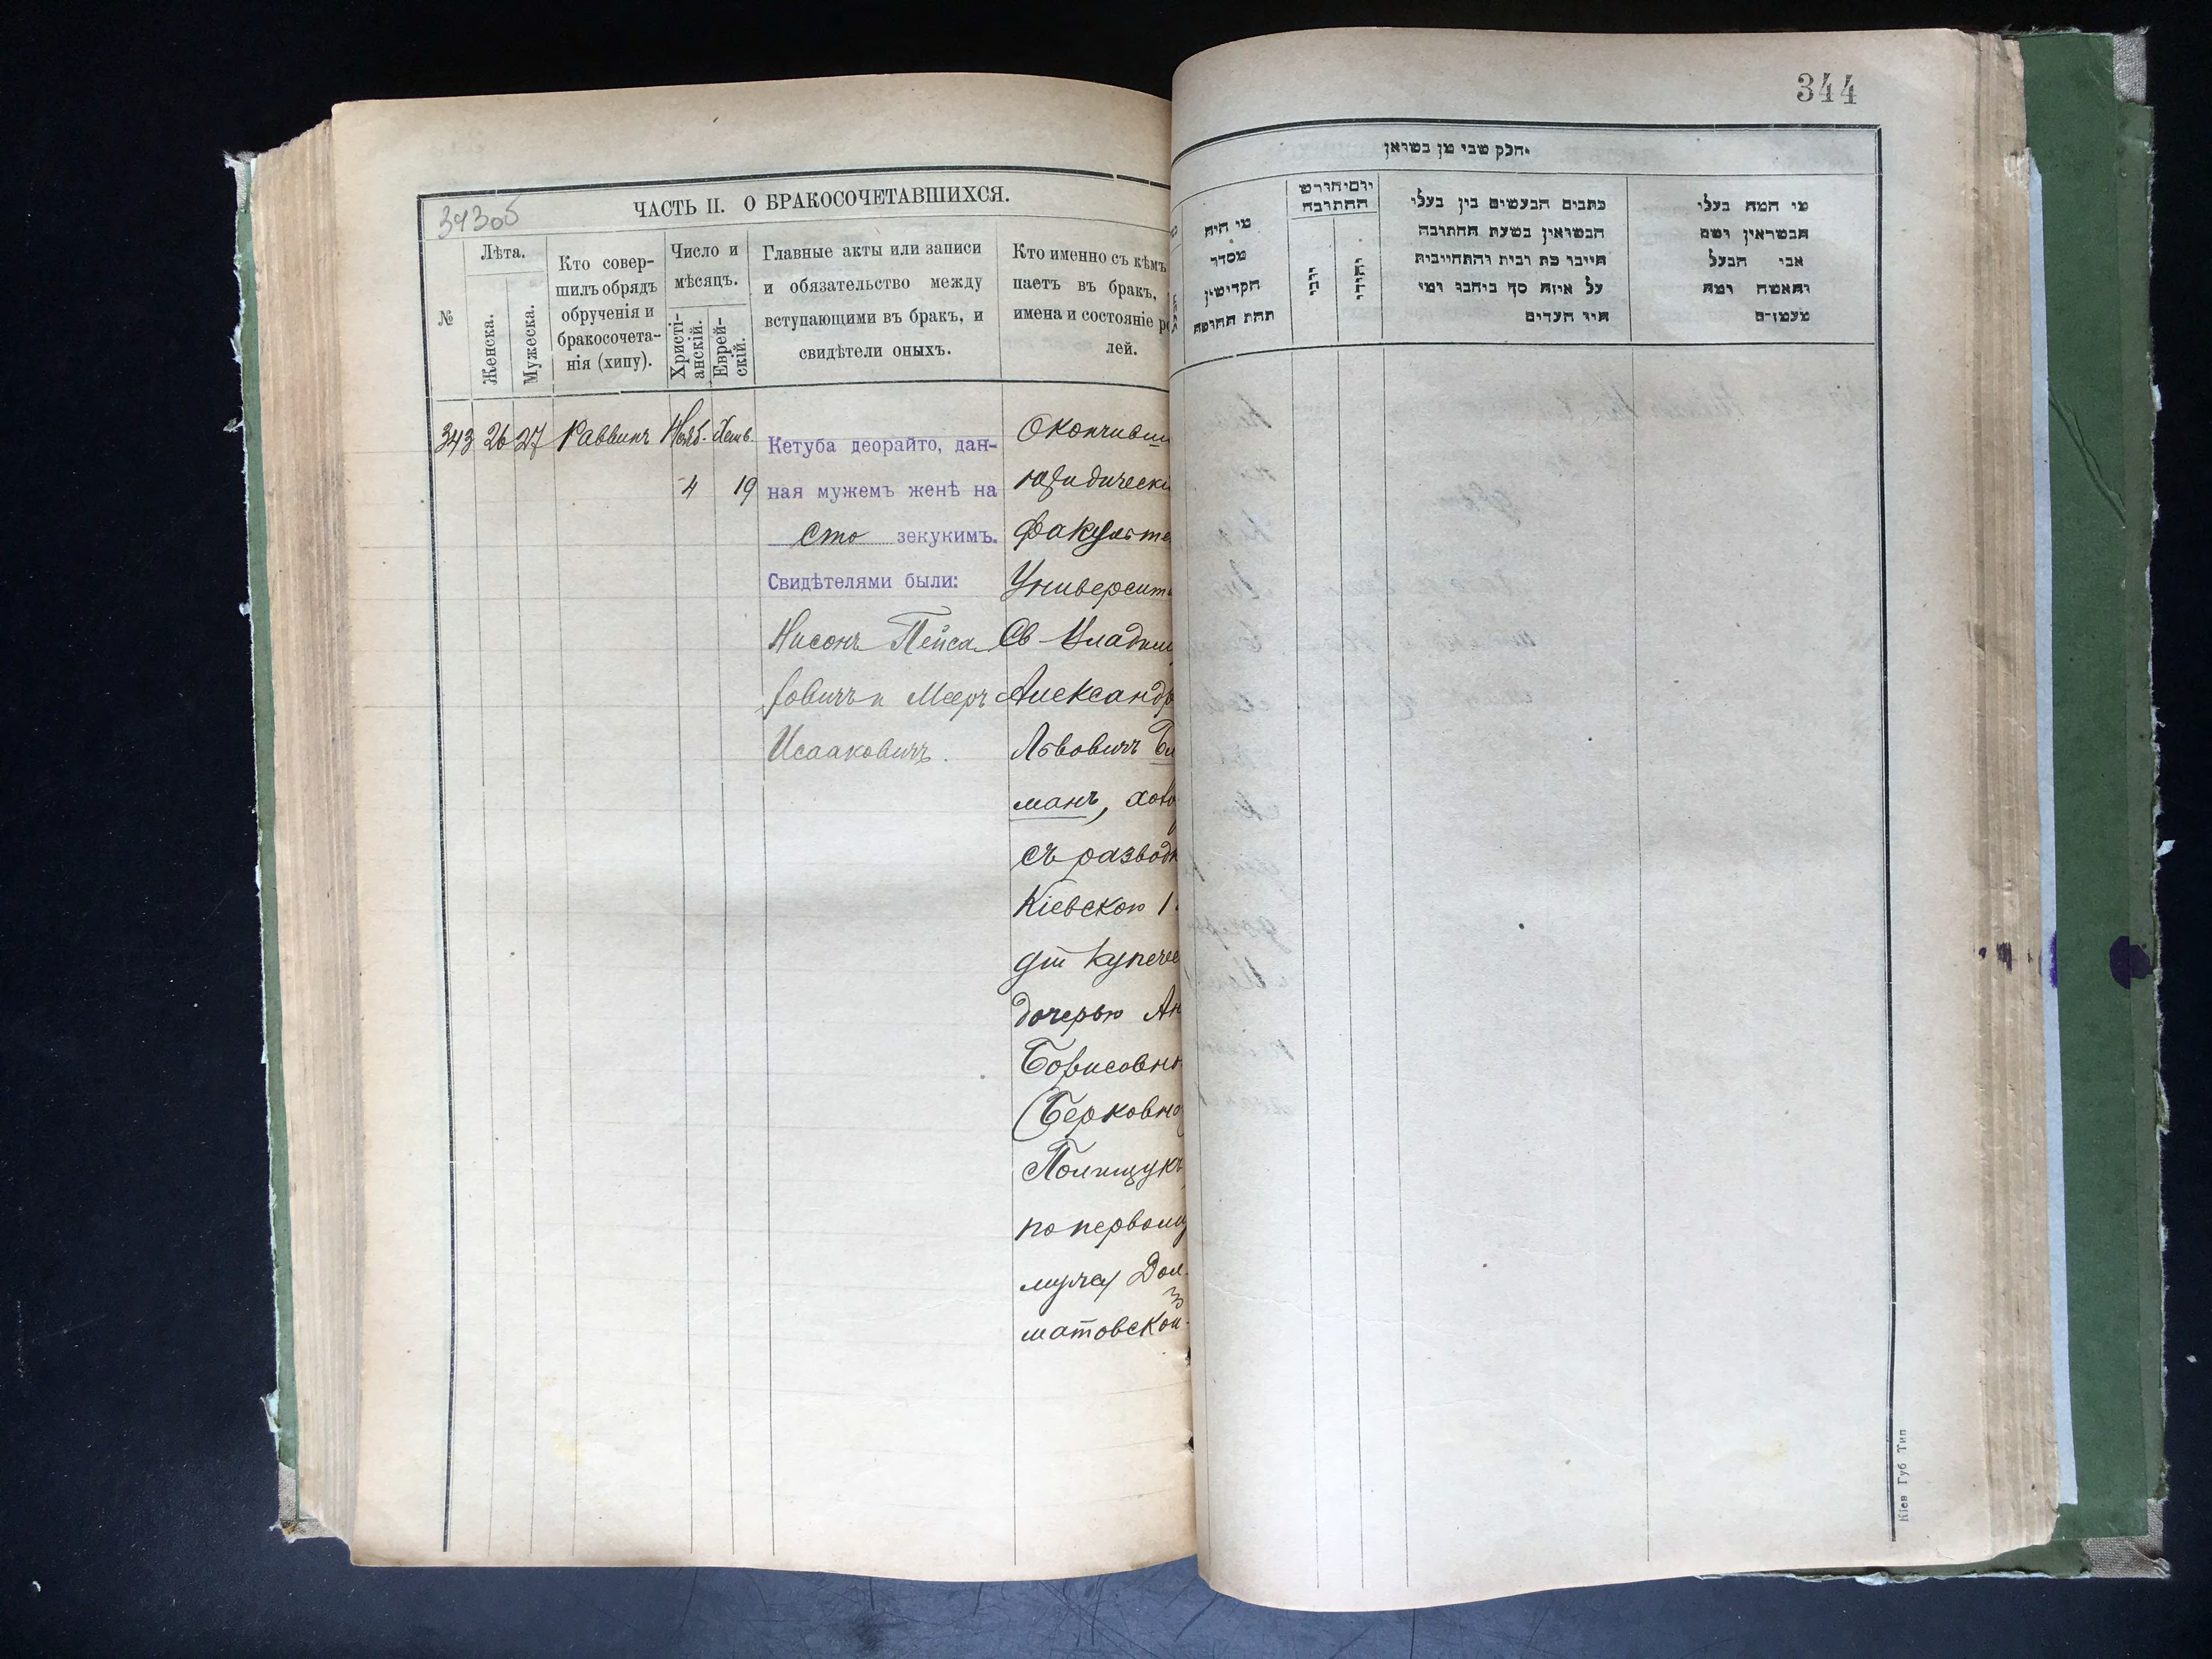 343об
ЧАСТЬ II. О БРАКОСОЧЕТАВШИХСЯ.
№
Лѣта.
Женска.
Мужеска.
Кто совер-
шилъ обрядъ
обрученія и
бракосочета-
нія (хипу).
Число и
мѣсяцъ.
Христі-
анскій.
Еврей-
скій.
Главные акты или записи
и обязательство между
вступающими въ бракъ, и
свидѣтели оныхъ.
Кто именно съ кѣмъ
паетъ въ бракъ,
имена и состояніе ро
лей.
343 26 27 Раввинъ Нояб. Хешв.
4 19
Кетуба деорайто, дан-
ная мужемъ женѣ на
сто зекукимъ.
Свидѣтелями были:
Нисонъ Пейса
ховичъ и Мееръ
Исааковичъ.
Окончивш
юридически
факульте
Университе
Св Владим
Александр
Львовичъ
манъ, холо
съ разводк
Кіевскою 1
гил купече
дочерью Ан
Борисовно
(Берковно
Полищукъ
по первому
мужу Дол
матовской
344
חלק שני מן נשואין
מי היה
מסדר
הקדושין
תחת החופה
יום וחודש
החתונה
נוצרי
יהודי
כתבים הנעשים בין בעלי
הנשואין בשעת החתונה
חייבי כת ובית והתחייבות
על איזה סך ביחבו ומי
היו העדים
מי המה בעלי
הנשואין ושם
אבי הבעל
והאשה ומה
מעמדם
Кіев Губ Тип